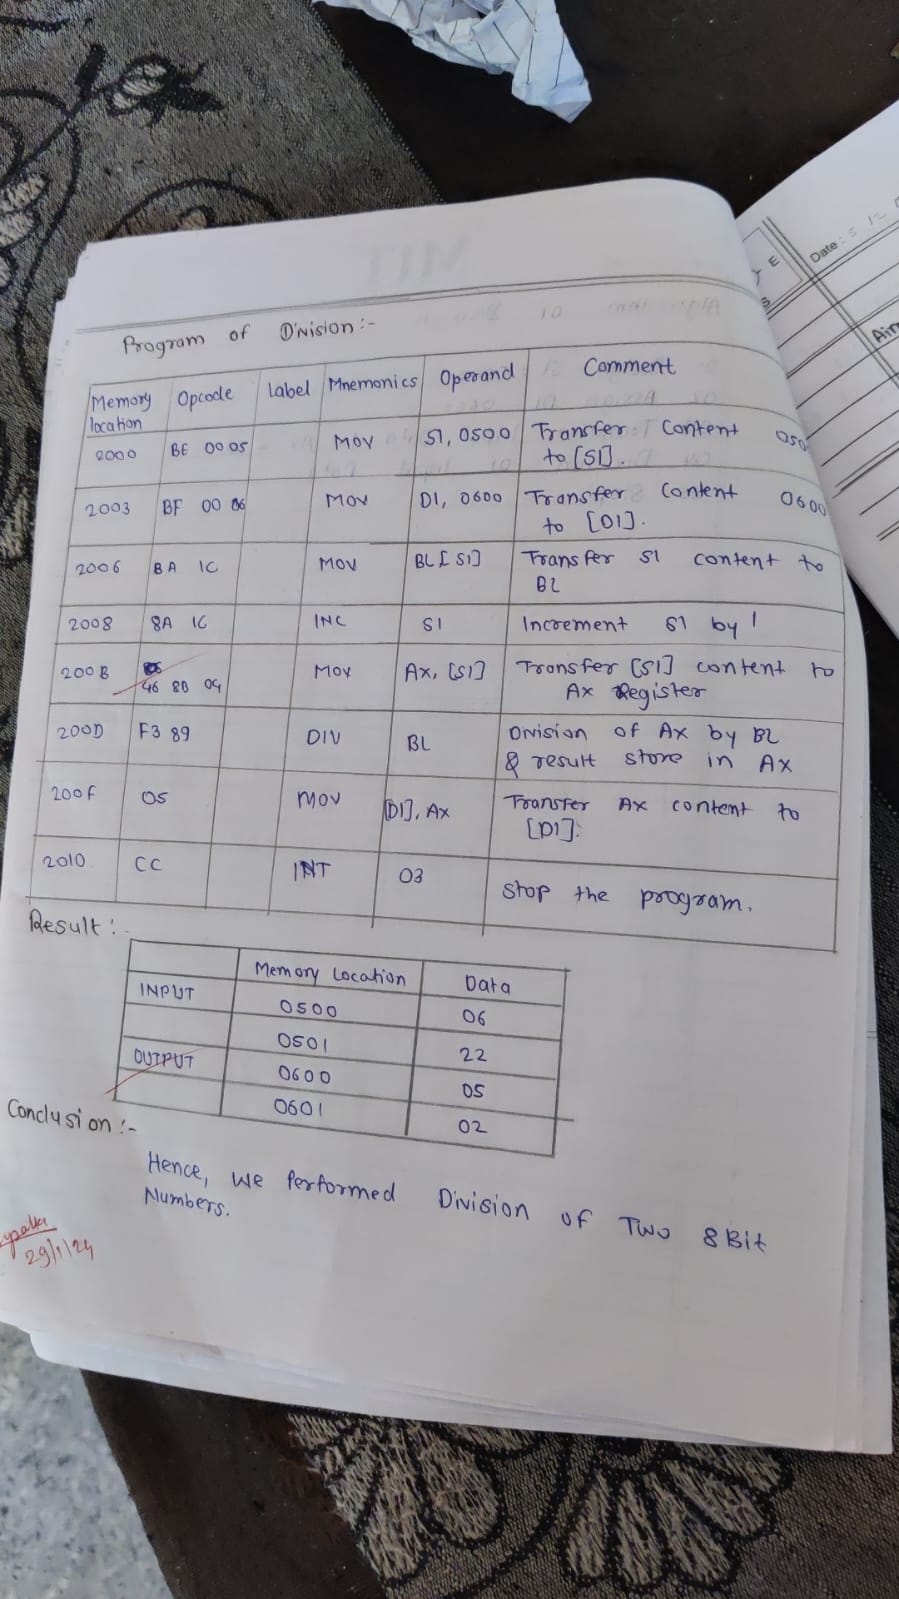 Program of Division :-
Memory location Opcode Label Mnemonics Operand Comment
2000 BE 00 05 MOV SI, 0500 Transfer Content 050
to [SI].
2003 BF 00 06 MOV DI, 0600 Transfer Content 0600
to [DI].
2006 BA 1C MOV BL [SI] Transfer SI content to
BL
2008 8A 1C INC SI Increment SI by 1
200B 46 8B 04 MOV AX, [SI] Transfer [SI] content to
AX Register
200D F3 89 DIV BL Division of AX by BL
& result store in AX
200F 05 MOV [DI], AX Transfer AX content to
[DI].
2010 CC INT 03 Stop the program.
Result :-
Memory Location Data
INPUT 0500 06
0501 22
OUTPUT 0600 05
0601 02
Conclusion :-
Hence, we Performed Division of Two 8 Bit
Numbers.
29/1/24
Date: 5 12
E